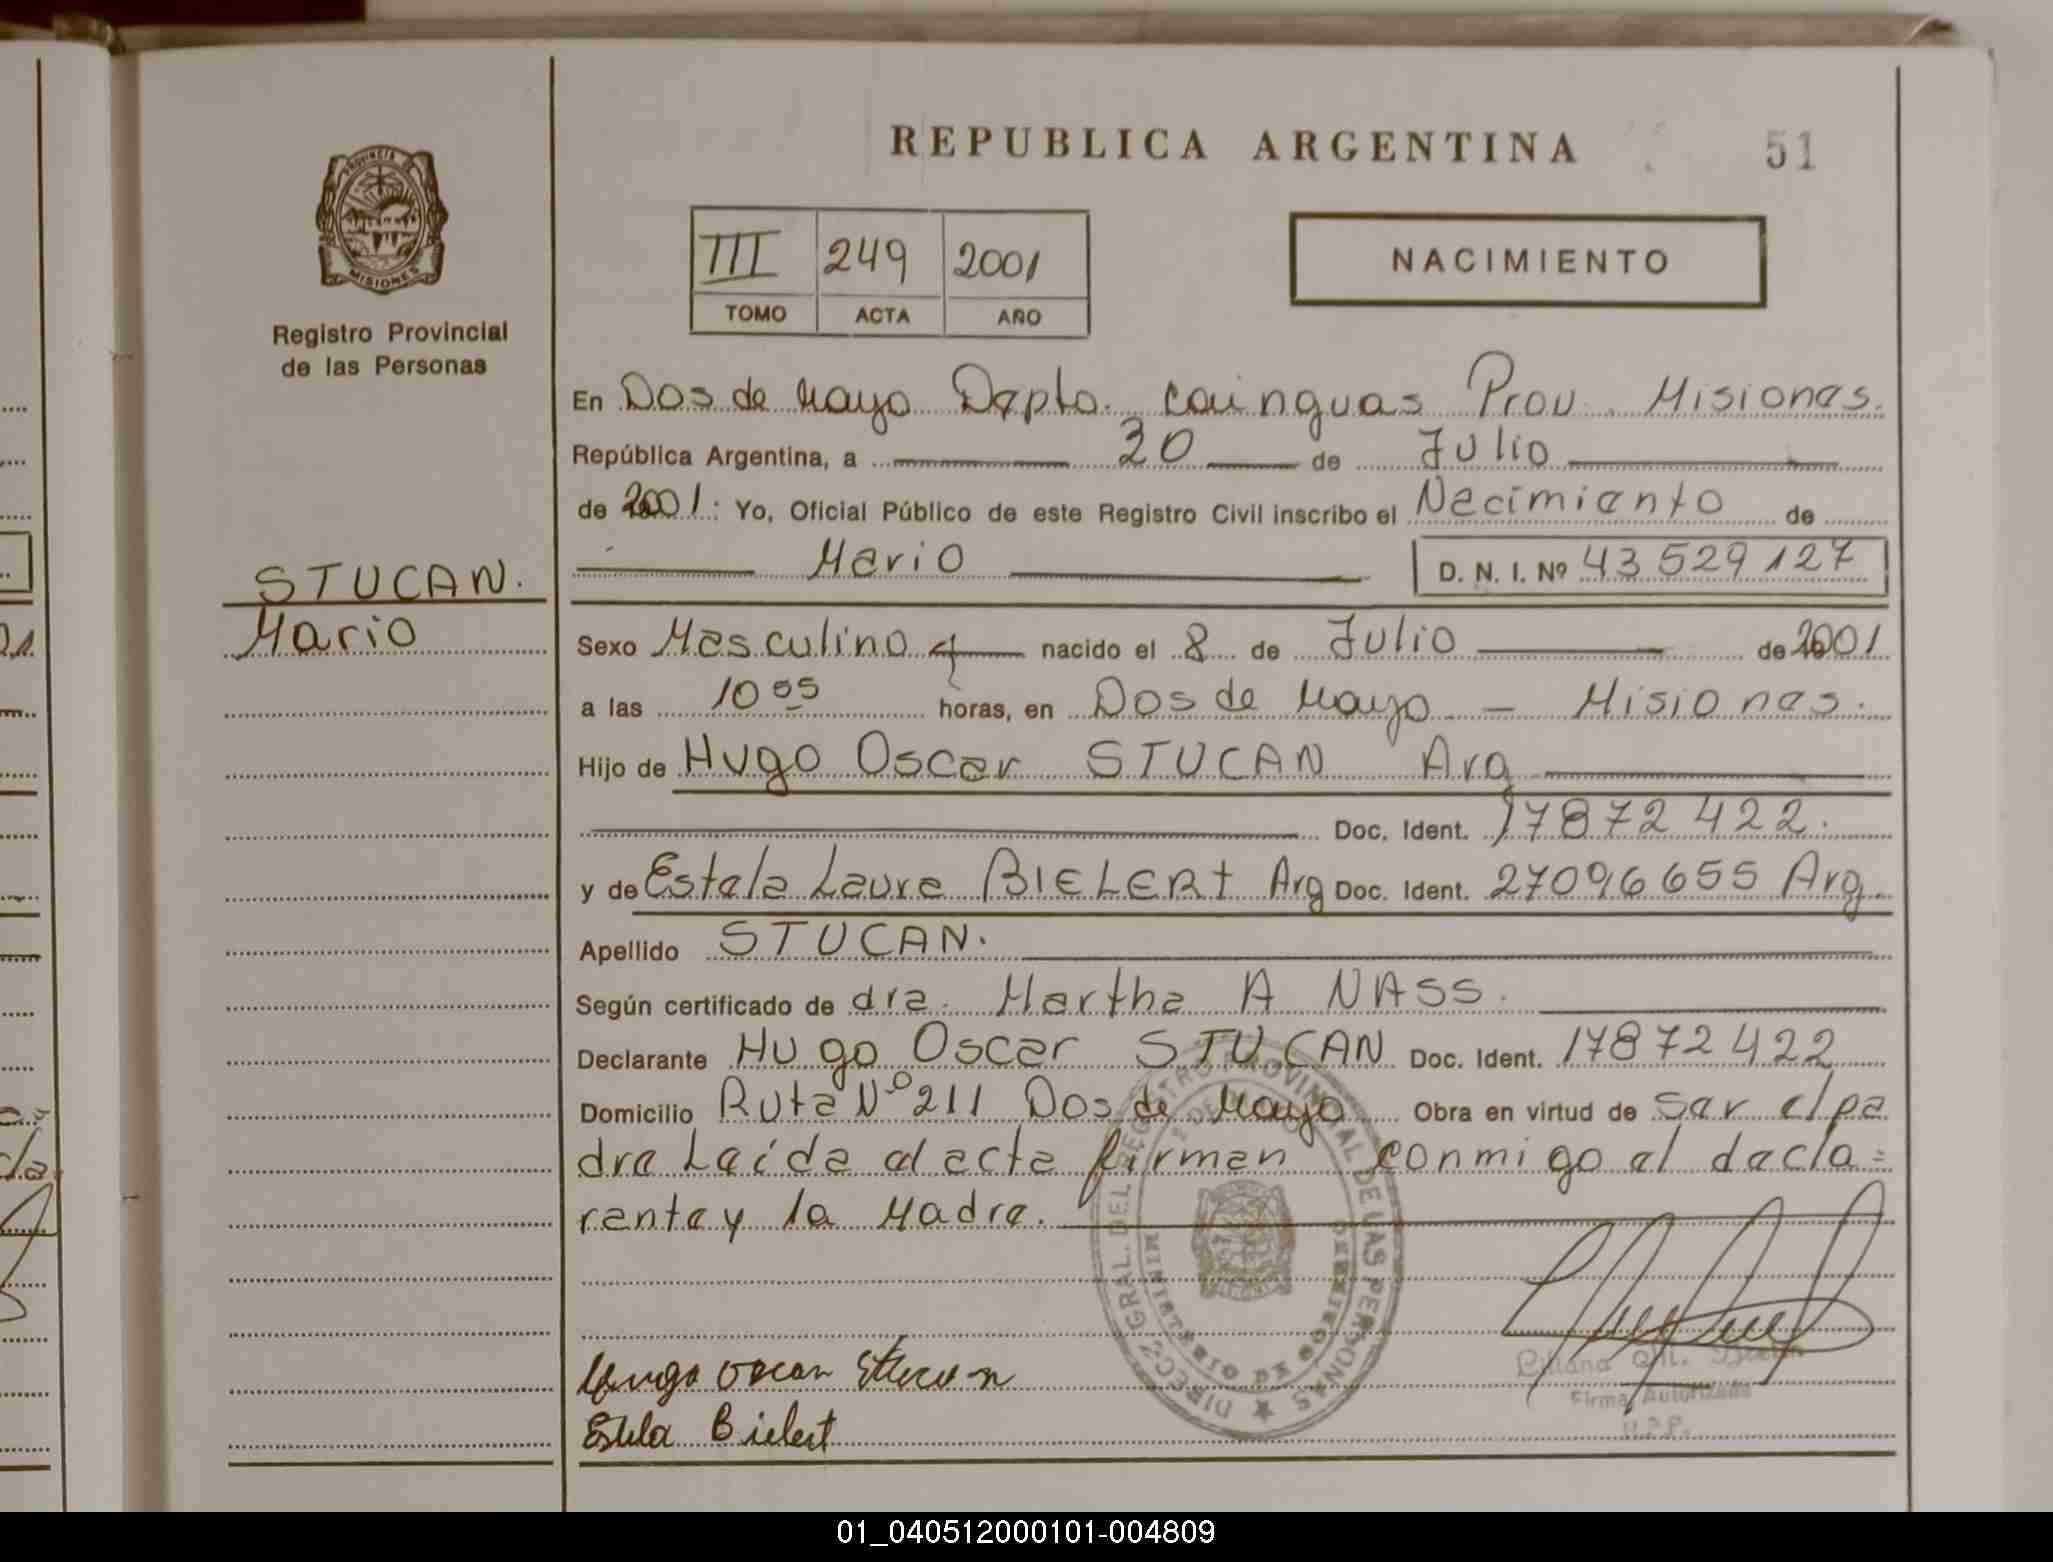 REPUBLICA ARGENTINA 51
PROVINCIA DE MISIONES
Registro Provincial
de las Personas
III 249 2001
TOMO ACTA AÑO
NACIMIENTO
En Dos de Mayo Depto. Cainguas Prov. Misiones.
República Argentina, a 20 de Julio
de 2001: Yo, Oficial Público de este Registro Civil inscribo el Nacimiento de
Mario D. N. I. Nº 43529127
STUCAN.
Mario
Sexo Masculino nacido el 8 de Julio de 2001
a las 10 05 horas, en Dos de Mayo - Misiones.
Hijo de Hugo Oscar STUCAN Arg
Doc. Ident. 17872422.
y de Estela Laura BIELERT Arg Doc. Ident. 27096655 Arg.
Apellido STUCAN.
Según certificado de dra. Martha A NASS.
Declarante Hugo Oscar STUCAN Doc. Ident. 17872422
Domicilio Ruta Nº 211 Dos de Mayo Obra en virtud de ser el pa
dre Leída el acta firman conmigo el decla=
rante y la Madre.
DIRECC. GRAL. DEL REGISTRO PROVINCIAL DE LAS PERSONAS
Hugo Oscar Stucan
Estela Bielert
Firma Autorizada
01_040512000101-004809